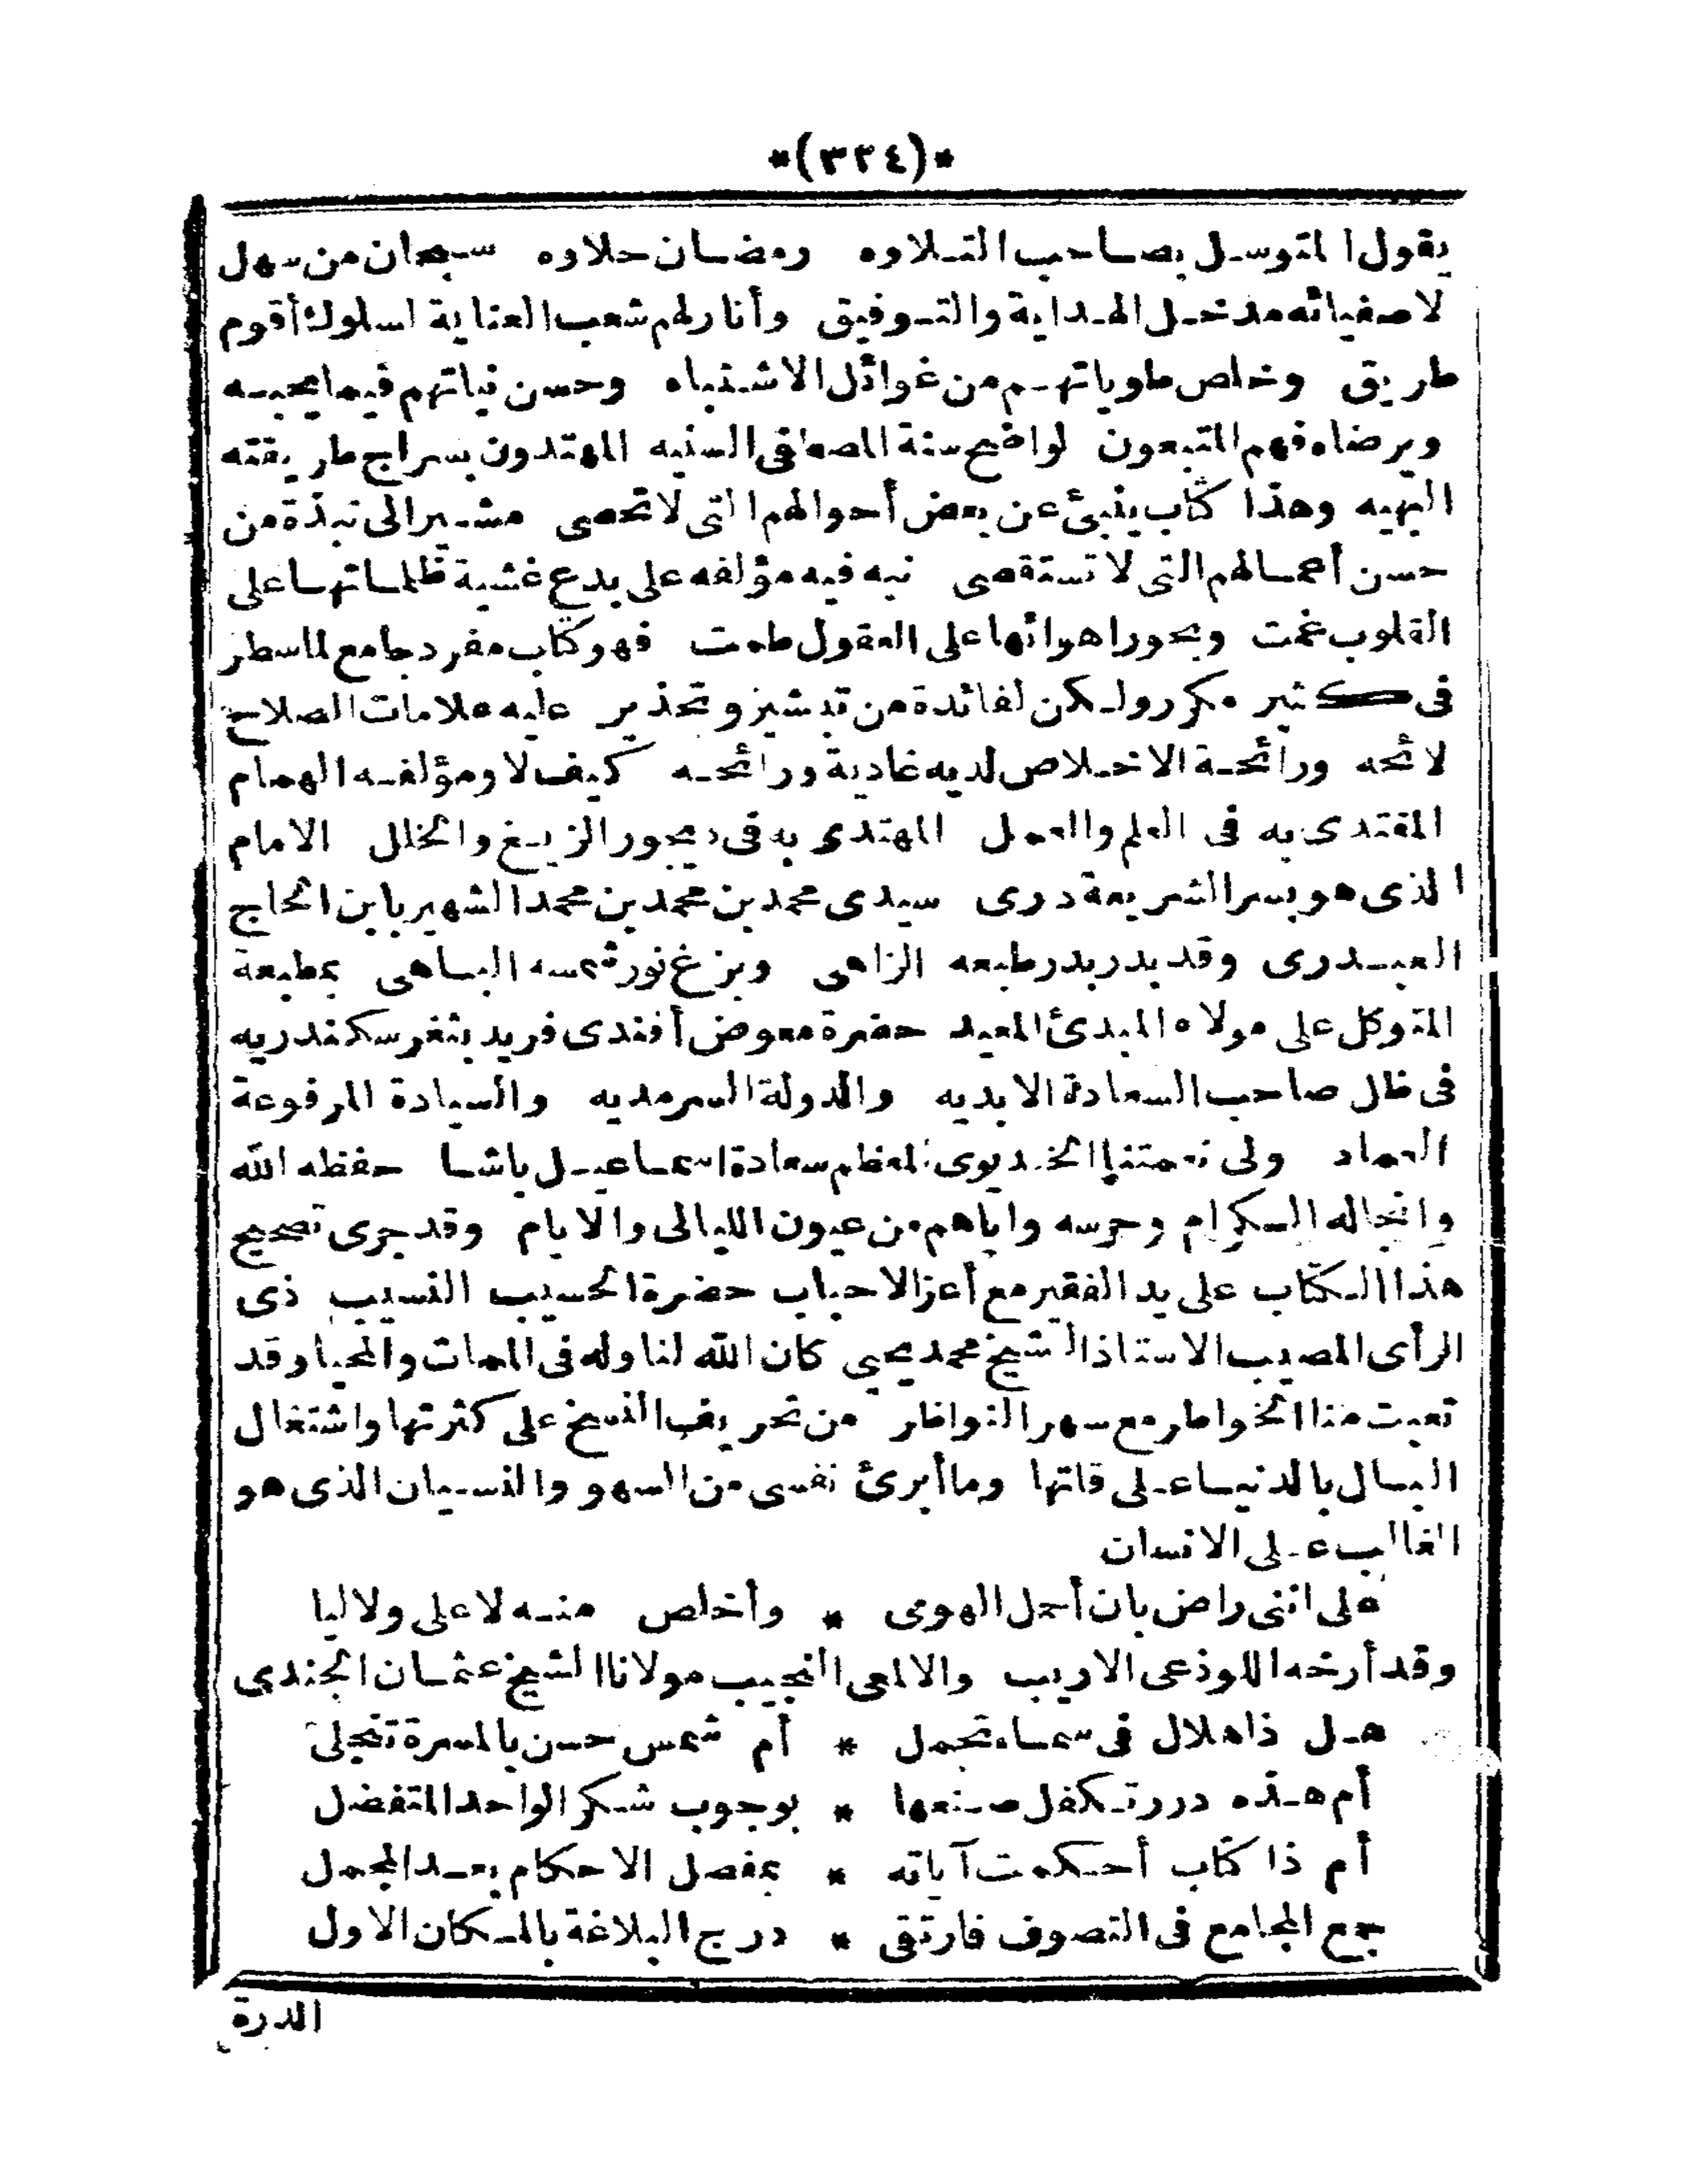 *(٣٢٤)*
يقول المتوسل بصاحب التلاوه رمضان حلاوه سبحان من سهل
لاصفيائه مدخل الهداية والتوفيق وأنار لهم شعب العناية لسلوك أقوم
طريق وخلص طوياتهم من غوائل الاشتباه وحسن نياتهم فيما يحبه
ويرضاه فهم المتبعون لواضح سنة المصطفى السنيه المهتدون بسراج طريقته
البهيه وهذا كتاب ينبئ عن بعض أحوالهم التى لاتحصى مشيرالى نبذة من
حسن أعمالهم التى لا تستقصى نبه فيه مؤلفه على بدع غشية ظلماتها على
القلوب غمت وبحور اهوائها على العقول طمت فهو كتاب مفرد جامع لماسطر
فى كثير مكرر ولكن لفائدة من تبشير وتحذير عليه علامات الصلاح
لائحه ورائحة الاخلاص لديه غادية ورائحه كيف لا ومؤلفه الهمام
المقتدى به فى العلم والعمل المهتدى به فى ديجور الزيغ والخلل الامام
الذى هو بسر الشريعة درى سيدى محمد بن محمد بن محمد الشهير بابن الحاج
العبدرى وقد بدر بدر طبعه الزاهى وبزغ نور شمسه الباهى بمطبعة
المتوكل على مولاه المبدئ المعيد حضرة معوض أفندى فريد بثغر سكندريه
فى ظل صاحب السعادة الابديه والدولة السرمديه والسيادة المرفوعة
العماد ولى نعمتنا الخديوى المعظم سعادة اسماعيل باشا حفظه الله
وانجاله الكرام وحرسه واياهم من عيون الليالى والايام وقد جرى تصحيح
هذا الكتاب على يد الفقير مع أعز الاحباب حضرة الحسيب النسيب ذى
الرأى المصيب الاستاذ الشيخ محمد يحيى كان الله لنا وله فى الممات والمحيا وقد
تعبت منا الخواطر مع سهر النواظر من تحريف النسخ على كثرتها واشتغال
البال بالدنيا على قاتها وما أبرئ نفسى من السهو والنسيان الذى هو
الغالب على الانسان
على اننى راض بان أحمل الهوى * وأخلص منه لاعلى ولاليا
وقد أرخه اللوذعى الاريب والالمعى النجيب مولانا الشيخ عثمان الجندى
هل ذا هلال فى سماء تجمل * أم شمس حسن بالمسرة تنجلى
أم هذه درر تكفل صنعها * بوجوب شكر الواحد المتفضل
أم ذا كتاب أحكمت آياته * بمفصل الاحكام بعد المجمل
جمع المجامع فى التصوف فارتقى * درج البلاغة بالمكان الاول
الدرة